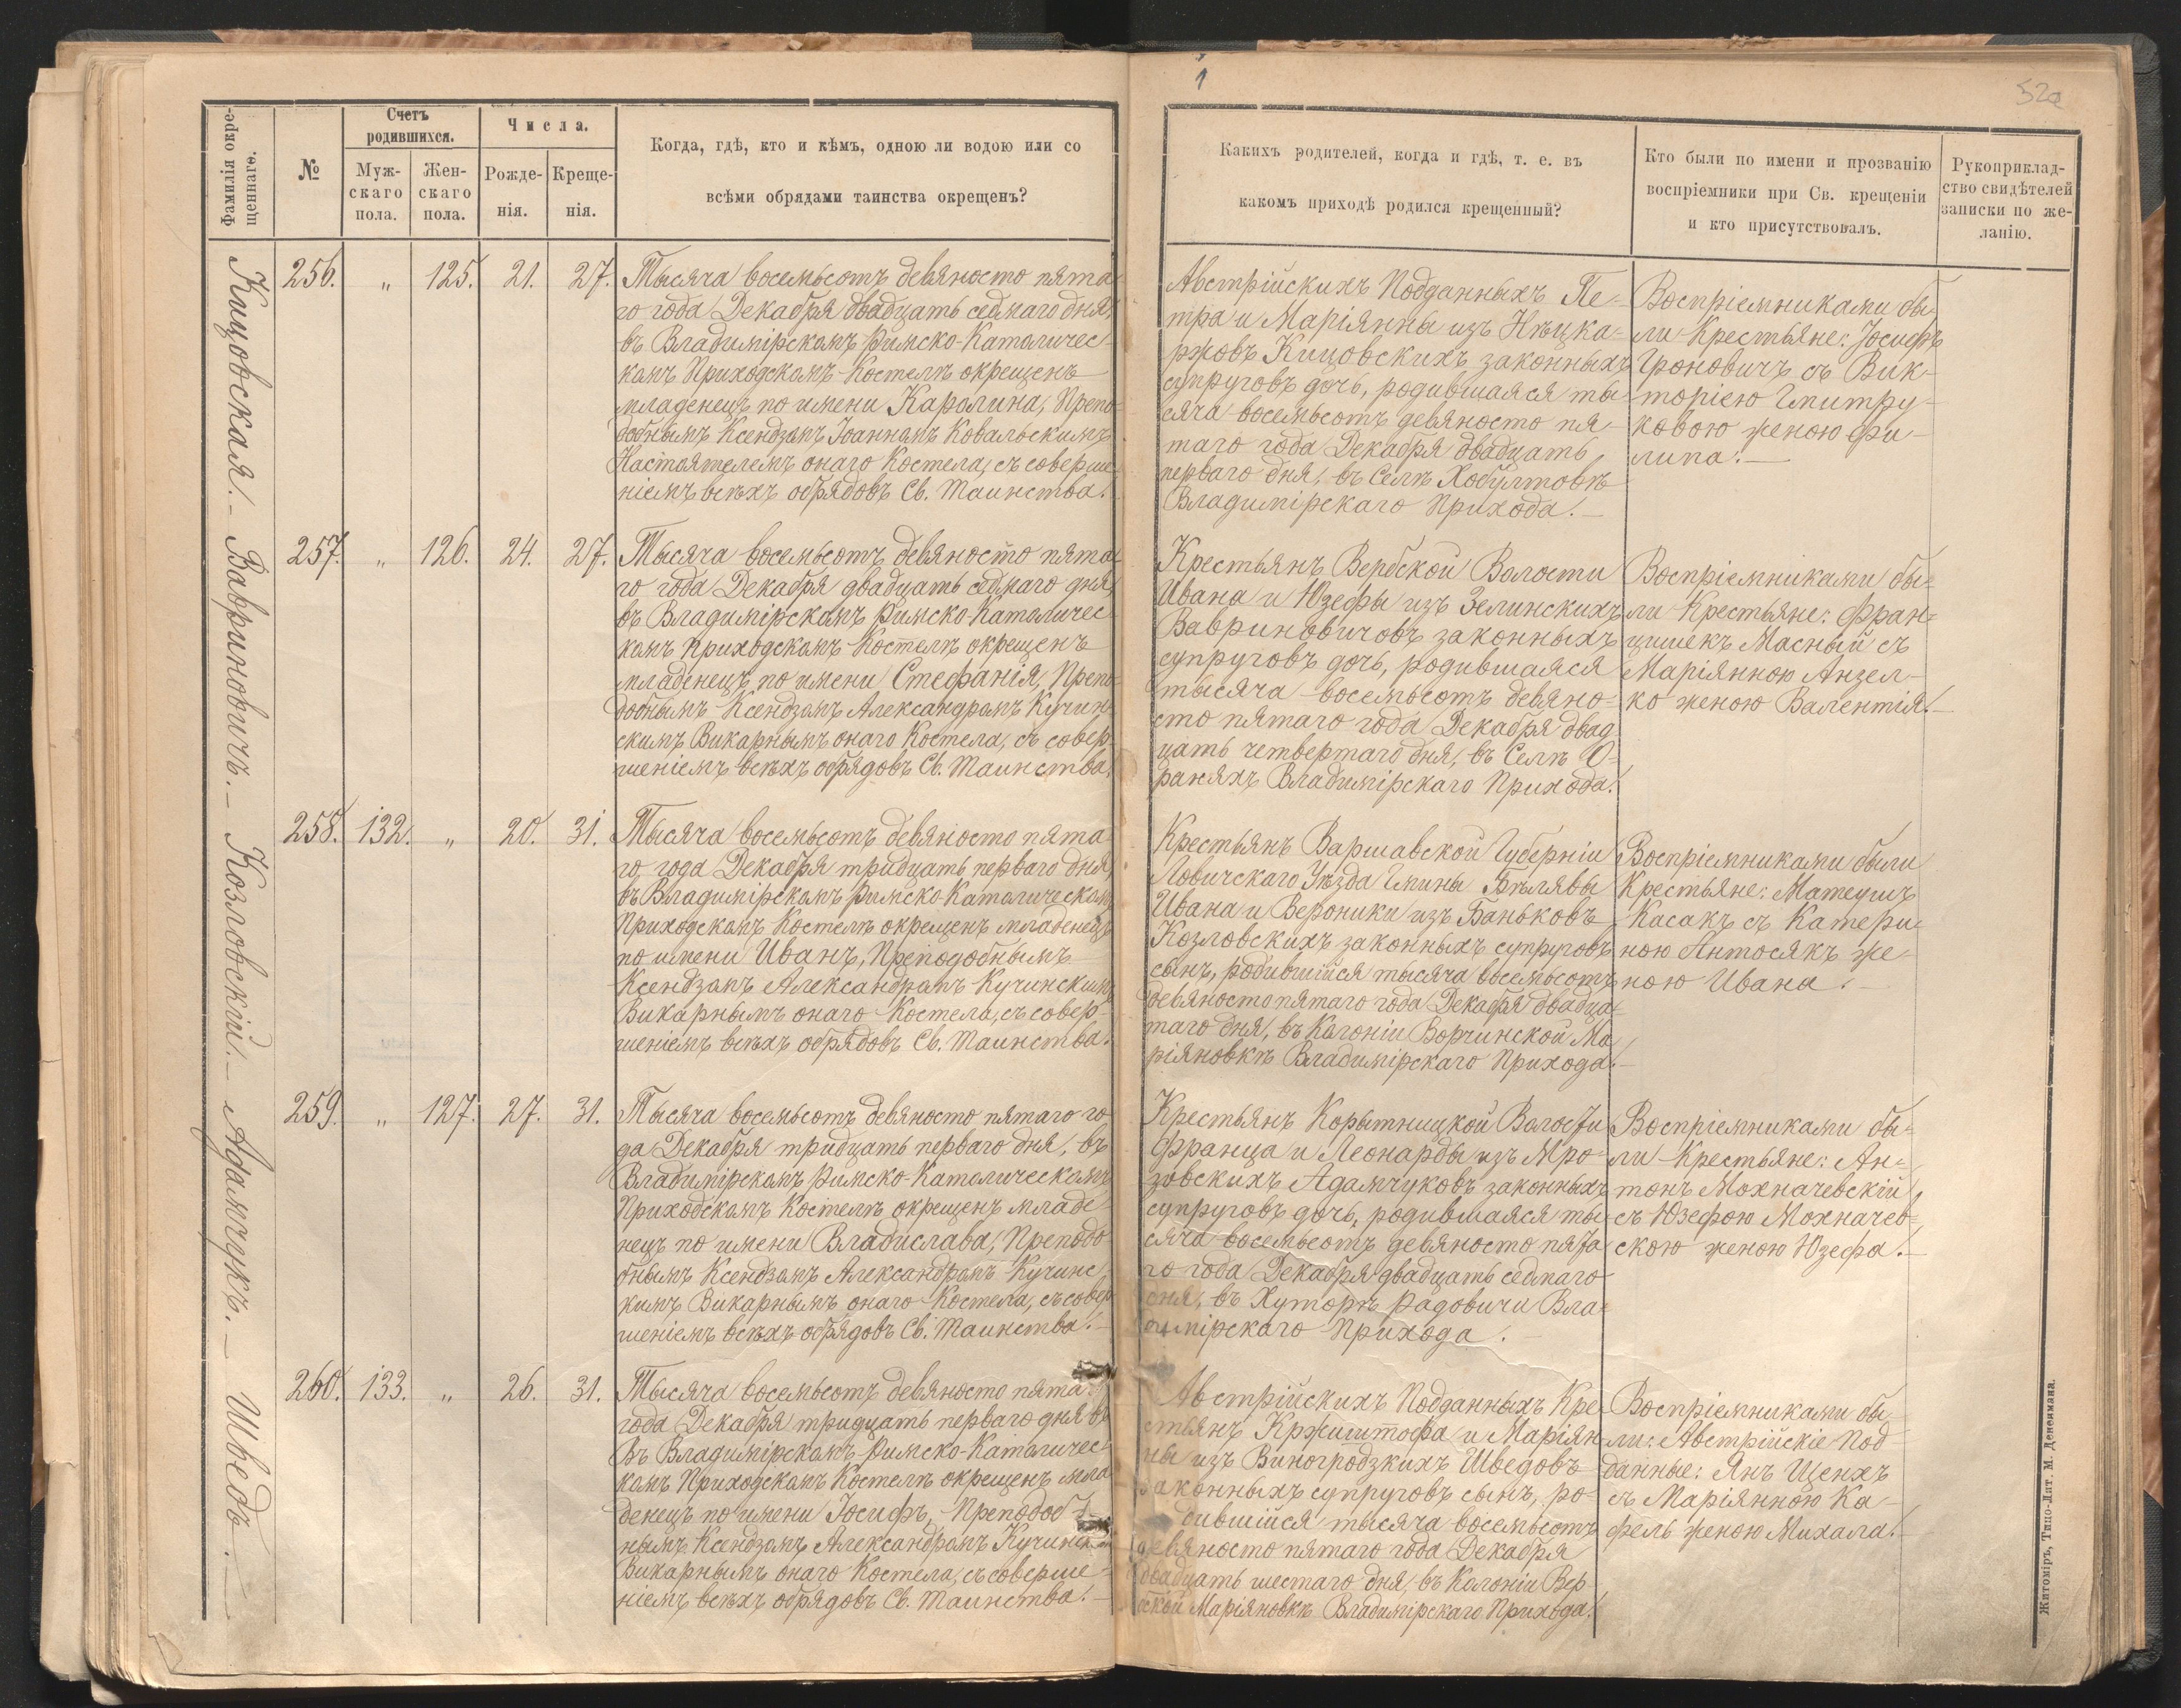 1
52а
Фамилія окре-
щеннаго.
№
Счетъ
родившихся.
Муж-
скаго
пола.
Жен-
скаго
пола.
Числа.
Рожде-
нія.
Креще-
нія.
Когда, гдѣ, кто и кѣмъ, одною ли водою или со
всѣми обрядами таинства окрещенъ?
Какихъ родителей, когда и гдѣ, т. е. въ
какомъ приходѣ родился крещенный?
Кто были по имени и прозванію
воспріемники при Св. крещеніи
и кто присутствовалъ.
Рукоприклад-
ство свидѣтелей
записки по же-
ланію.
Кицовская.
256. " 125. 21. 27.
Тысяча восемьсотъ девяносто пята
го года Декабря двадцать седмаго дня,
въ Владимірскомъ Римско-Католичес-
комъ Приходскомъ Костелѣ окрещенъ
младенецъ по имени Каролина, Препо-
добнымъ Ксендзомъ Іоанномъ Ковальскимъ
Настоятелемъ онаго Костела, съ соверше-
ніемъ всѣхъ обрядовъ Св. Таинства.
Австрійскихъ Подданныхъ Пе-
тра и Маріянны изъ Нѣцка-
ржовъ Кицовскихъ законныхъ
супруговъ дочь, родившаяся ты-
сяча восемьсотъ девяносто пя-
таго года Декабря двадцать
перваго дня, въ Селѣ Хобултовѣ
Владимірскаго Прихода.
Воспріемниками бы-
ли Крестьяне: Іосифъ
Гроновичъ съ Вик-
торіею Гмитру-
ковою женою Фи-
липа.
Вавриновичъ.
257. " 126. 24. 27.
Тысяча восемьсотъ девяносто пята
го года Декабря двадцать седмаго дня,
въ Владимірскомъ Римско-Католичес
комъ Приходскомъ Костелѣ окрещенъ
младенецъ по имени Стефанія, Препо-
добнымъ Ксендзомъ Александромъ Кучин-
скимъ Викарнымъ онаго Костела, съ совер-
шеніемъ всѣхъ обрядовъ Св. Таинства.
Крестьянъ Вербской Волости
Ивана и Юзефы изъ Зелинскихъ
Вавриновичовъ законныхъ
супруговъ дочь, родившаяся
тысяча восемьсотъ девяно-
сто пятаго года Декабря двад
цать четвертаго дня, въ Селѣ О-
раняхъ Владимірскаго Прихода.
Воспріемниками бы-
ли Крестьяне: Фран-
цишекъ Масный съ
Маріянною Анзел-
ко женою Валентія.
Козловскій.
258. 132. " 20. 31.
Тысяча восемьсотъ девяносто пята
го года Декабря тридцать перваго дня,
въ Владимірскомъ Римско-Католическомъ
Приходскомъ Костелѣ окрещенъ младенецъ
по имени Иванъ, Преподобнымъ
Ксендзомъ Александромъ Кучинскимъ
Викарнымъ онаго Костела, съ совер-
шеніемъ всѣхъ обрядовъ Св. Таинства.
Крестьянъ Варшавской Губерніи
Ловичскаго Уѣзда Гмины Бѣлявы
Ивана и Вероники изъ Баньковъ
Козловскихъ законныхъ супруговъ
сынъ, родившійся тысяча восемьсотъ
девяносто пятаго года Декабря двадца-
таго дня, въ Колоніи Ворчинской Ма
ріяновкѣ Владимірскаго Прихода.
Воспріемниками были
Крестьяне: Матеушъ
Касакъ съ Катери-
ною Антосякъ же-
ною Ивана.
Адамчукъ.
259. " 127. 27. 31.
Тысяча восемьсотъ девяносто пятаго го
да Декабря тридцать перваго дня, въ
Владимірскомъ Римско-Католическомъ
Приходскомъ Костелѣ окрещенъ младе-
нецъ по имени Владислава, Преподо
бнымъ Ксендзомъ Александромъ Кучинс-
кимъ Викарнымъ онаго Костела, съ совер
шеніемъ всѣхъ обрядовъ Св. Таинства.
Крестьянъ Корытницкой Волости
Франца и Леонарды изъ Мро-
зовскихъ Адамчуковъ законныхъ
супруговъ дочь, родившаяся ты-
сяча восемьсотъ девяносто пята
го года Декабря двадцать седмаго
дня, въ Хуторѣ Радовичи Вла-
димірскаго Прихода.
Воспріемниками бы-
ли Крестьяне: Ан-
тонъ Мохначевскій
съ Юзефою Мохначев-
скою женою Юзефа.
Шведъ.
260. 133. " 26. 31.
Тысяча восемьсотъ девяносто пята
года Декабря тридцать перваго дня въ
Въ Владимірскомъ Римско-Католичес-
комъ Приходскомъ Костелѣ окрещенъ мла
денецъ по имени Іосифъ, Преподоб-
нымъ Ксендзомъ Александромъ Кучинскимъ
Викарнымъ онаго Костела, съ соверше-
ніемъ всѣхъ обрядовъ Св. Таинства.
Австрійскихъ Подданныхъ Кре-
стьянъ Кржиштофа и Маріян
ны изъ Виногродзкихъ Шведовъ
законныхъ супруговъ сынъ, ро-
дившійся тысяча восемьсотъ
девяносто пятаго года Декабря
двадцать шестаго дня, въ Колоніи Вер
бской Маріяновкѣ Владимірскаго Прихода.
Воспріемниками бы-
ли: Австрійскіе Под-
данные: Янъ Щенхъ
съ Маріянною Ка-
фель женою Михала.
Житоміръ, Типо-Лит. М. Дененмана.